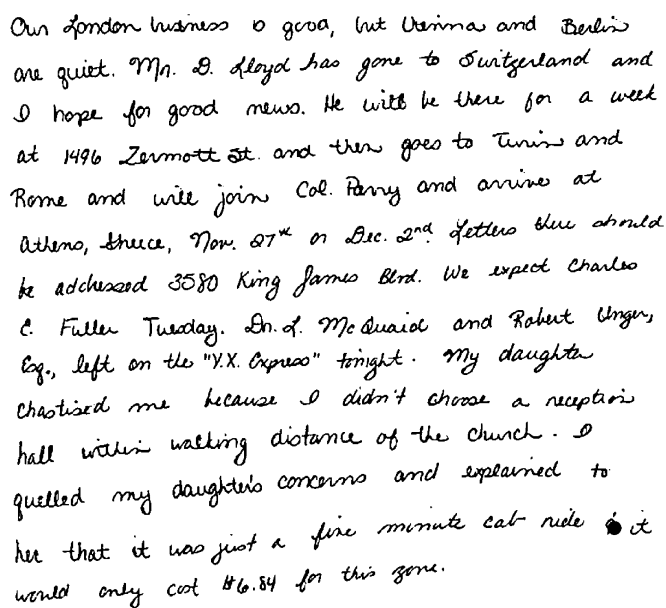 Our London business is good, but Vienna and Berlin
are quiet. Mr. D. Lloyd has gone to Switzerland and
I hope for good news. He will be there for a week
at 1496 Zermott St. and then goes to Turin and
Rome and will join Col. Parry and arrive at
Athens, Greece, Nov. 27th or Dec. 2nd. Letters there should
be addressed 3580 King James Blvd. We expect Charles
E. Fuller Tuesday. Dr. L. McQuaid and Robert Unger,
Esq., left on the "Y.X. Express" tonight. My daughter
chastised me because I didn't choose a reception
hall within walking distance of the church. I
quelled my daughter's concerns and explained to
her that it was just a five minute cab ride & it
would only cost $6.84 for this zone.